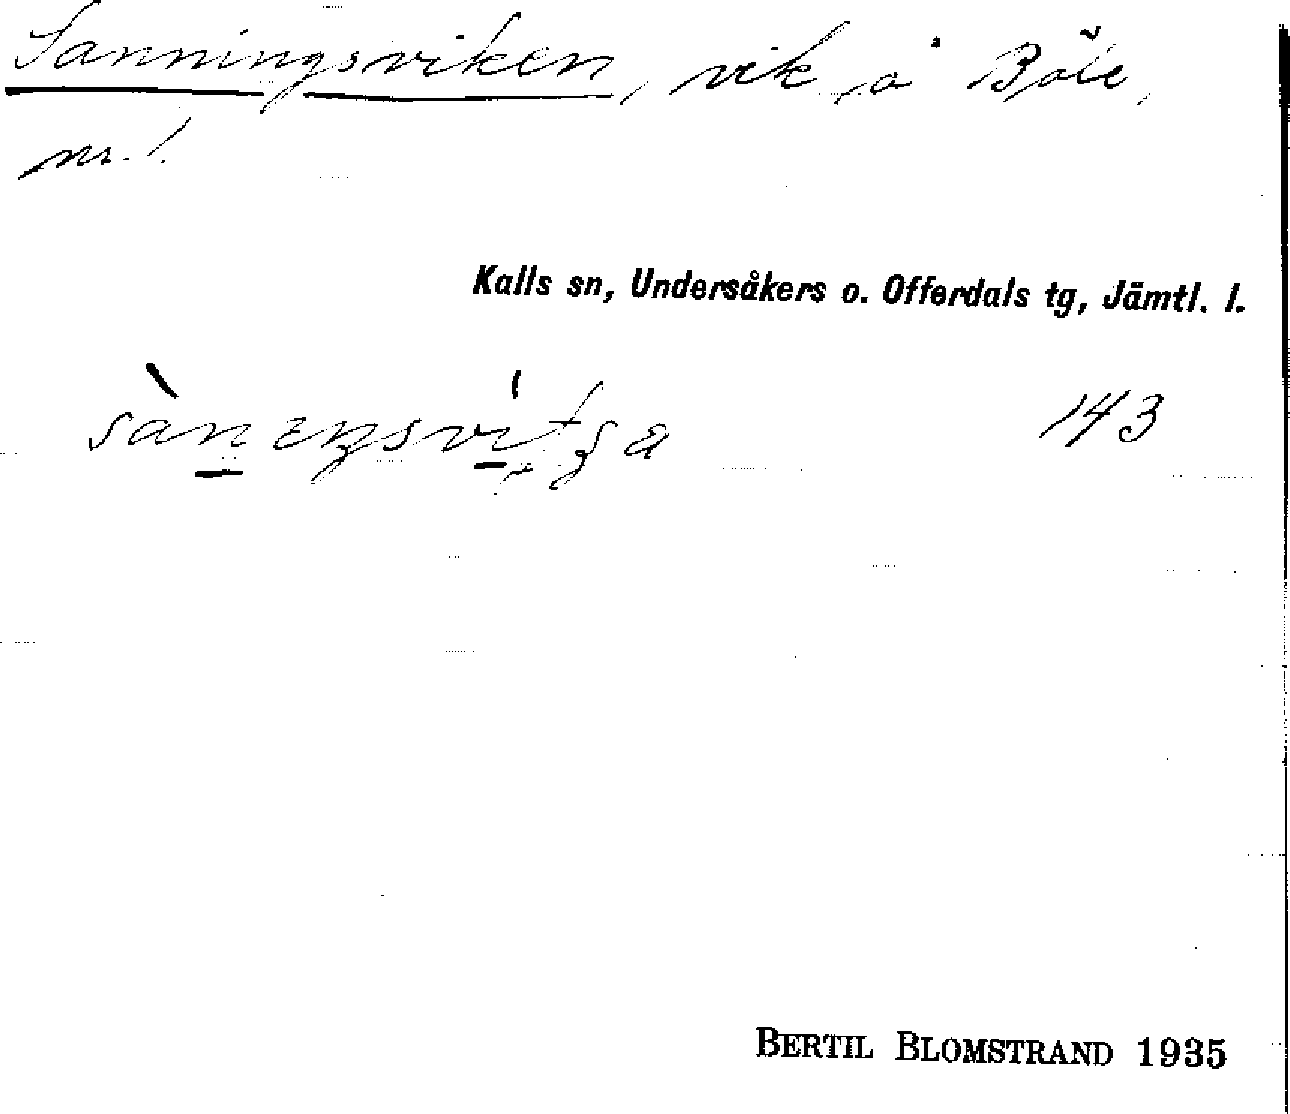 Sanningsviken, vik å Böle,
nr 1.
Kalls sn, Undersåkers o. Offerdals tg, Jämtl. l.
143
BERTIL BLOMSTRAND 1935